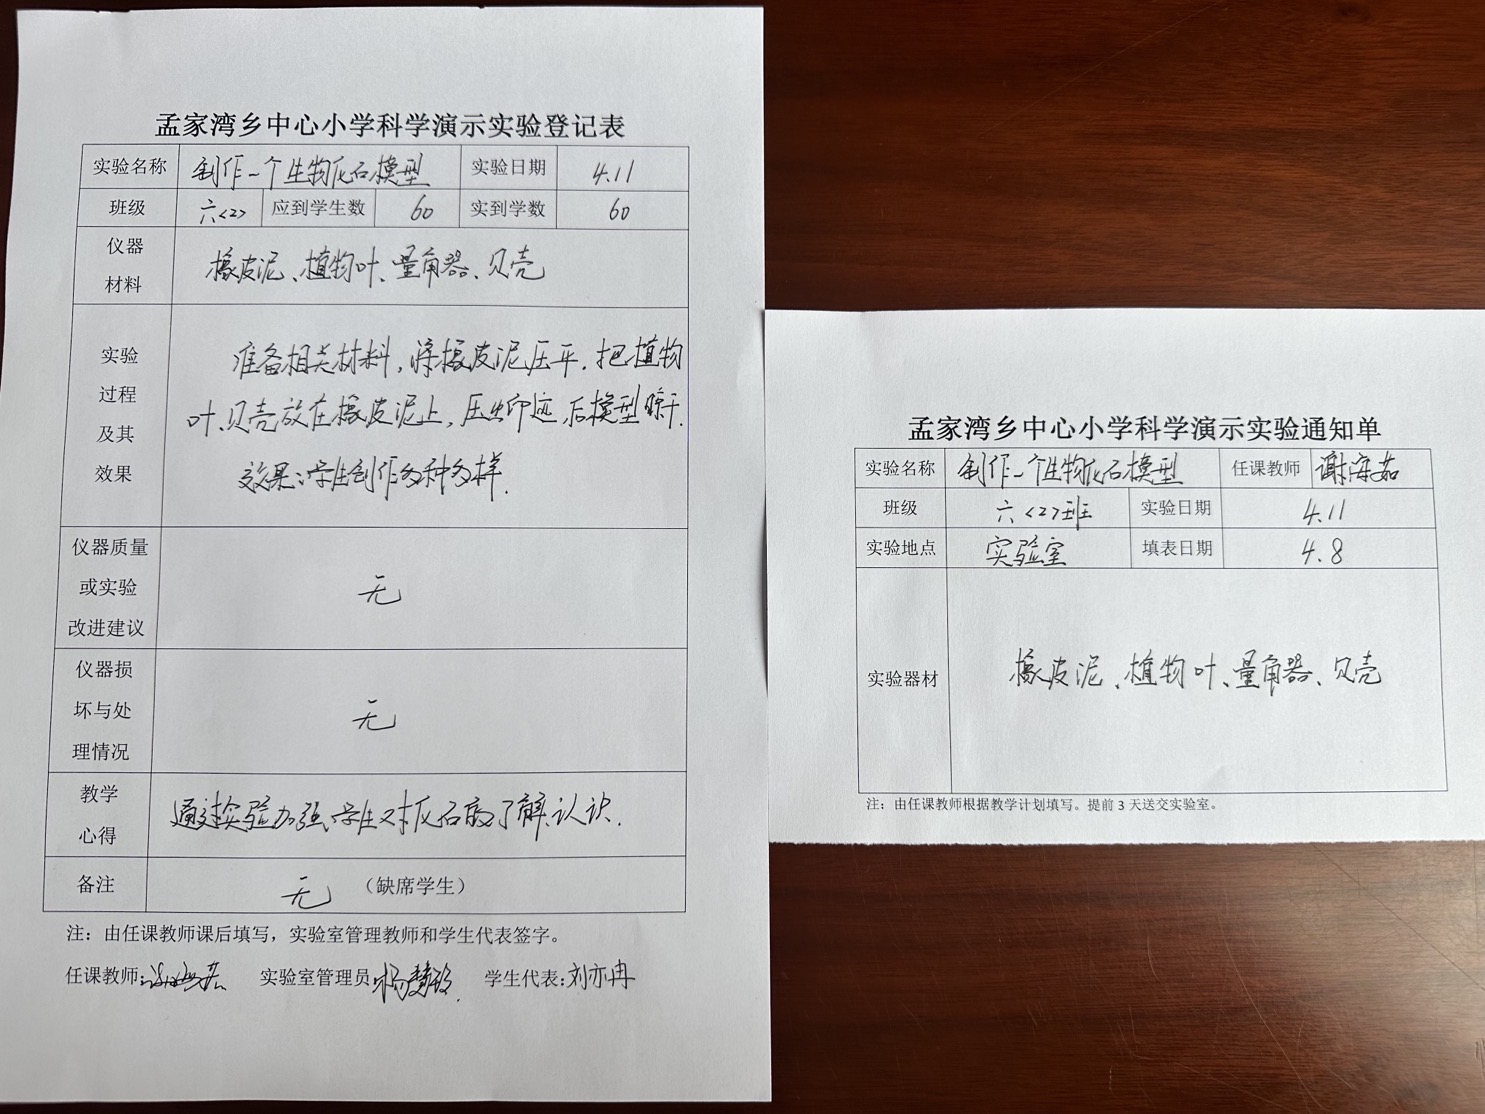 孟家湾乡中心小学科学演示实验登记表
实验名称 制作一个生物化石模型 实验日期 4.11
班级 六<2> 应到学生数 60 实到学数 60
仪器
材料
橡皮泥、植物叶、量角器、贝壳
实验
过程
及其
效果
准备相关材料,将橡皮泥压平,把植物
叶、贝壳放在橡皮泥上,压出印迹,后模型晾干.
效果:学生制作多种多样.
仪器质量
或实验
改进建议
无
仪器损
坏与处
理情况
无
教学
心得
通过实验加强学生对化石的了解、认识.
备注 无 (缺席学生)
注:由任课教师课后填写,实验室管理教师和学生代表签字。
任课教师:谢海茹 实验室管理员 学生代表:刘亦冉
孟家湾乡中心小学科学演示实验通知单
实验名称 制作一个生物化石模型 任课教师 谢海茹
班级 六<2>班 实验日期 4.11
实验地点 实验室 填表日期 4.8
实验器材 橡皮泥、植物叶、量角器、贝壳
注:由任课教师根据教学计划填写。提前3天送交实验室。